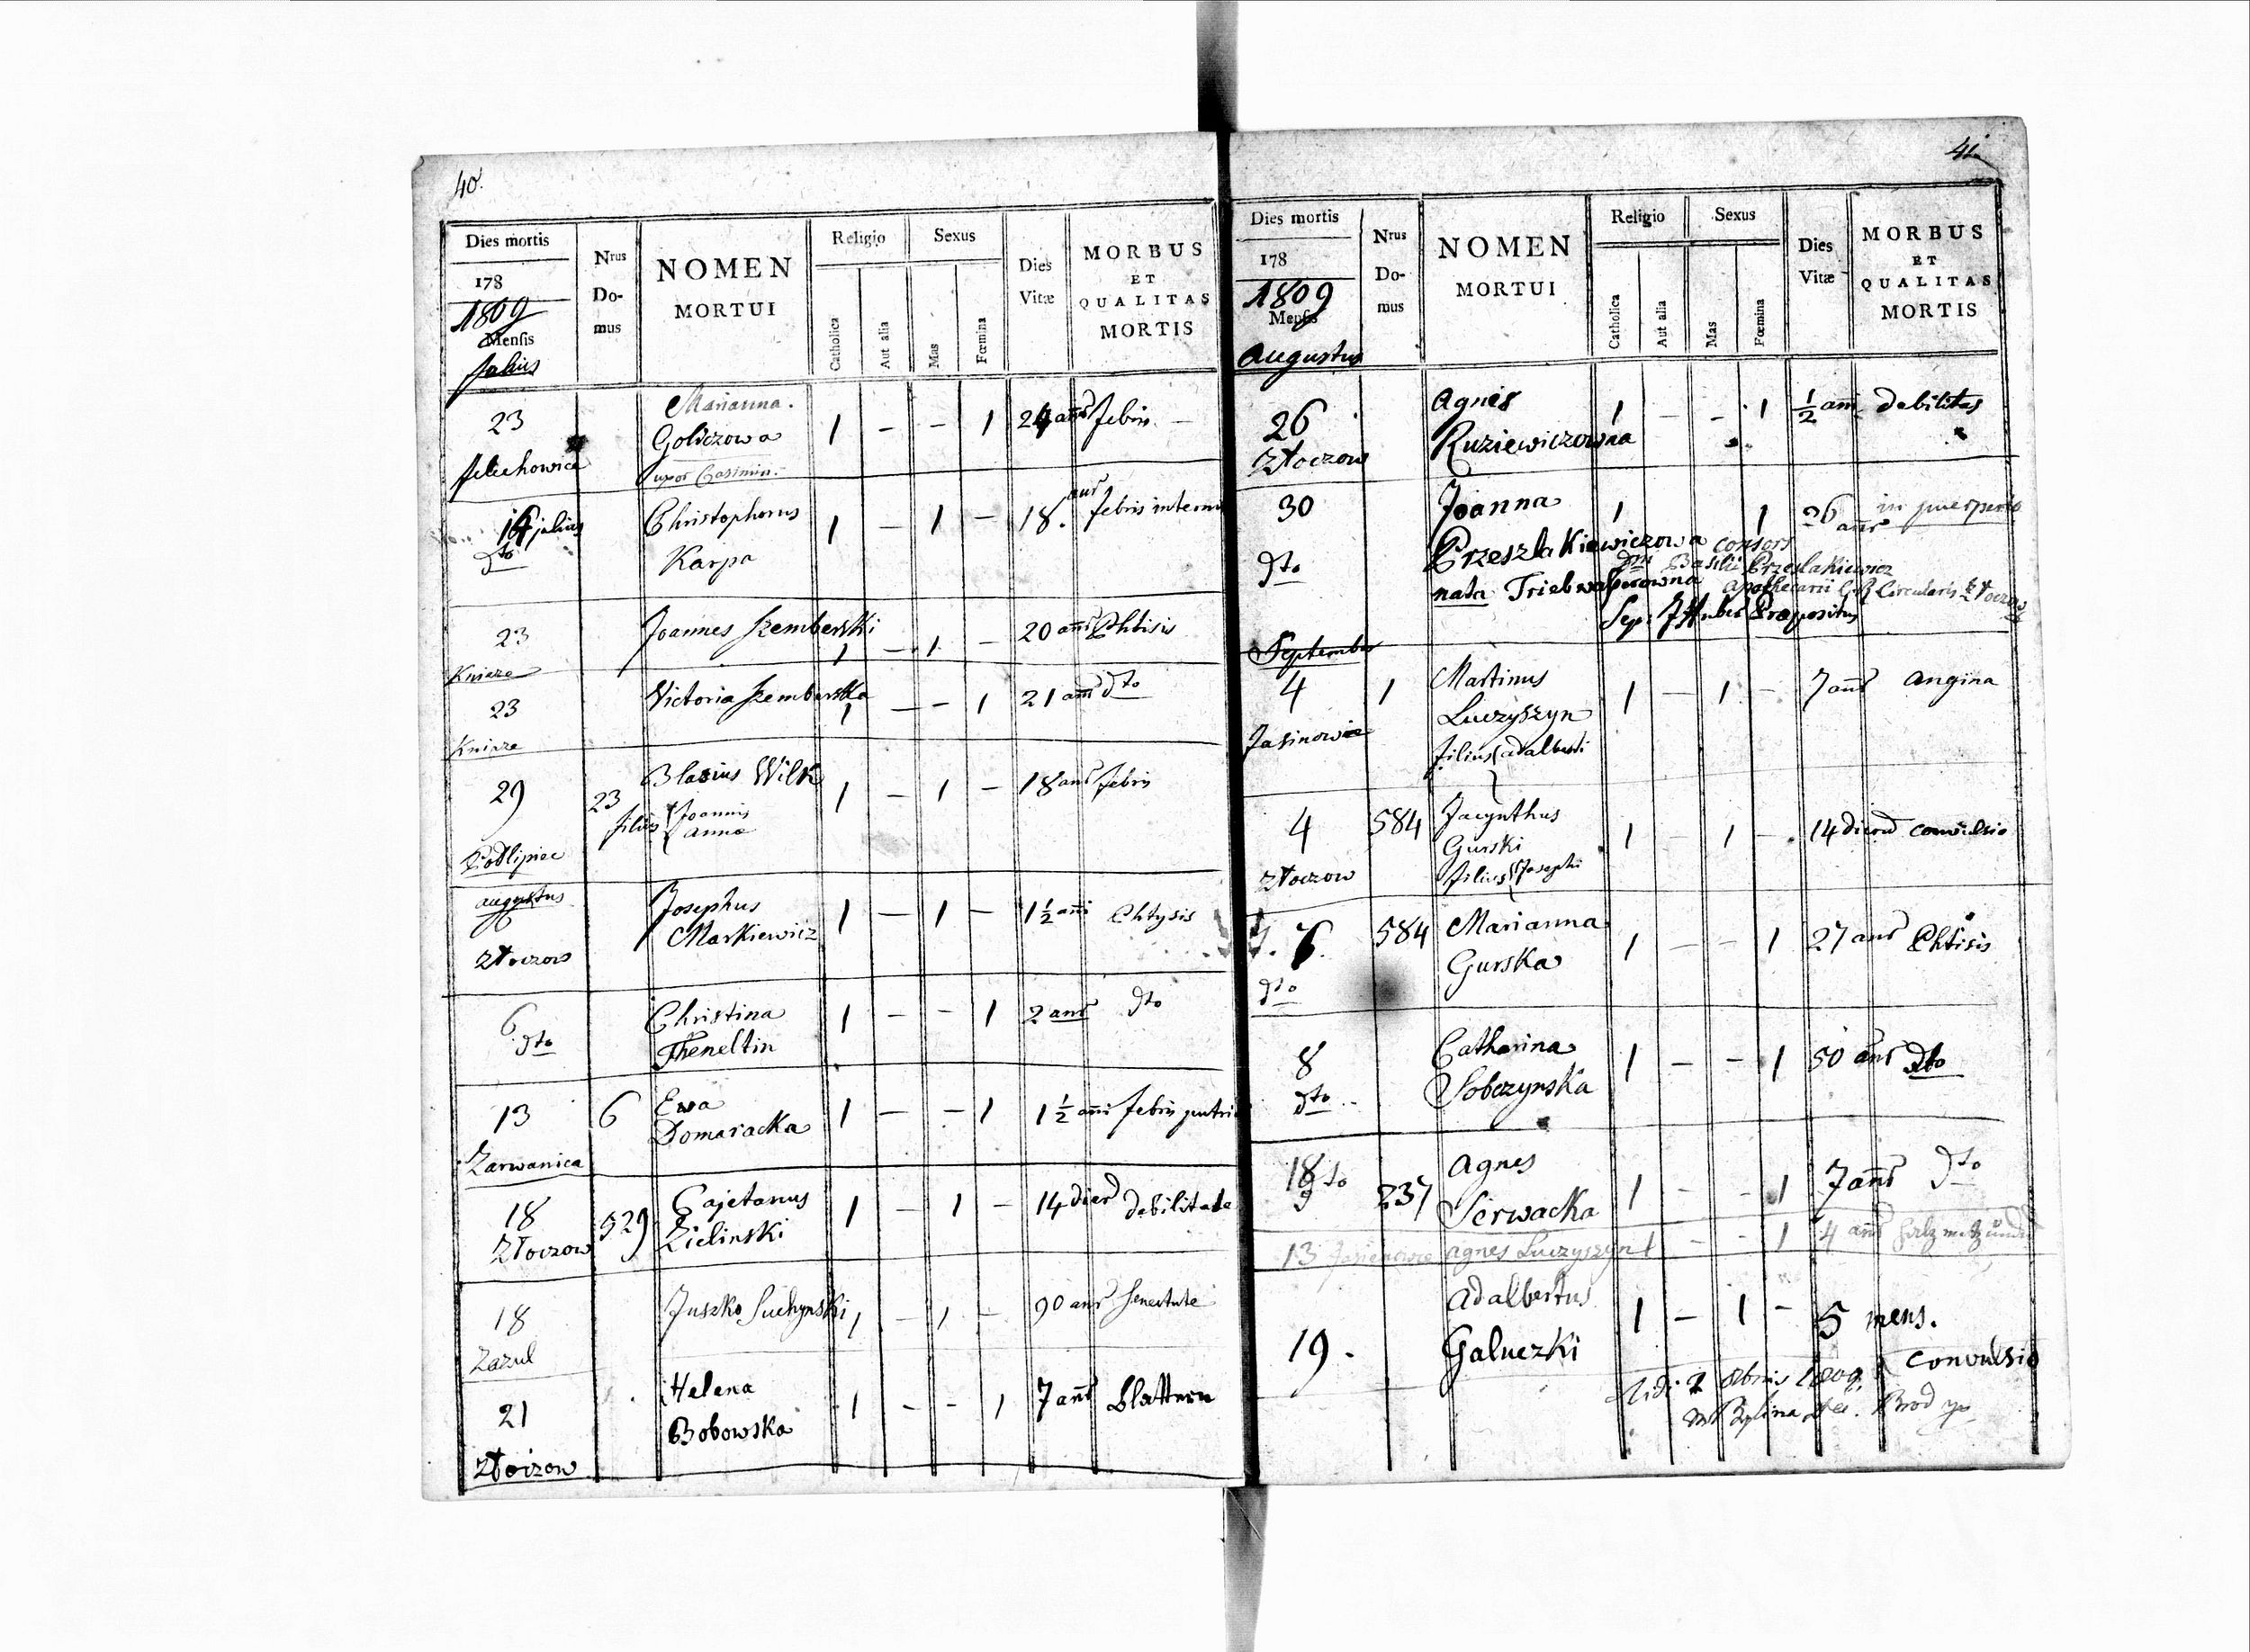 40.
Dies mortis
178
1809
Mensis
Julius
Nrus
Do-
mus
NOMEN
MORTUI
Religio
Catholica
Aut alia
Sexus
Mas
Fœmina
Dies
Vitæ
MORBUS
ET
QUALITAS
MORTIS
23 Marianna 1 - - 1 24 ann febris -
Goliczowa
Jelechowice uxor Casimiri
16 julius Christophorus 1 - 1 - 18. ann febris intermi
dto Karpa
23 Joannes Szemberski 1 - 1 - 20 ann Phtisis
Kniaze
23 Victoria Szemberska 1 - - 1 21 ann dto
Kniaze
29 23 Blasius Wilk 1 - 1 - 18 ann febris
filius Joannis
Anna
Podlipiec
augustus
6 Josephus 1 - 1 - 1 1/2 anni Phtysis
Markiewicz
Złoczow
6 Christina 1 - - 1 2 ann dto
dto Theneltin
13 6 Ewa 1 - - 1 1 1/2 anni febris putri
Domaracka
Zarwanica
18 529 Cajetanus 1 - 1 - 14 dierd debilitate
Złoczow Zielinski
18 Juszko Suchynski 1 - 1 - 90 ann senectute
Zazul
21 Helena 1 - - 1 7 ann Blattern
Bobowska
Złoczow
41.
Dies mortis
178
1809
Mensis
Augustus
Nrus
Do-
mus
NOMEN
MORTUI
Religio
Catholica
Aut alia
Sexus
Mas
Fœmina
Dies
Vitæ
MORBUS
ET
QUALITAS
MORTIS
26 Agnes 1 - - 1 1/2 anni debilitas
Ruziewiczowna
Złoczow
30 Joanna 1 1 26 ann in puerperio
Przeszlakiewiczowa consors
dni Basilii Przeslakiewicz
dto nata Triebwasserowna apothecarii C.R. Circularis Złoczow
Sep. J Huber Præpositus
September
4 1 Martinus 1 - 1 - 7 ann Angina
Luczyszyn
Jasinowce filius adalberti
4 584 Jacynthus 1 - 1 - 14 dierd convulsio
Gurski
Złoczow filius Josephi
7. 584 Marianna 1 - - 1 27 ann Phtisis
Gurska
dto
8 Catharina 1 - - 1 50 ann dto
dto Sobczynska
18 237 Agnes 1 - - 1 7 ann dto
dto Serwacka
13 Jasienowce agnes Luczyszyn 1 - - 1 4 ann
19. Adalbertus 1 - 1 - 5 mens.
Galuczki convulsio
Vidi 2 8bris 1809.